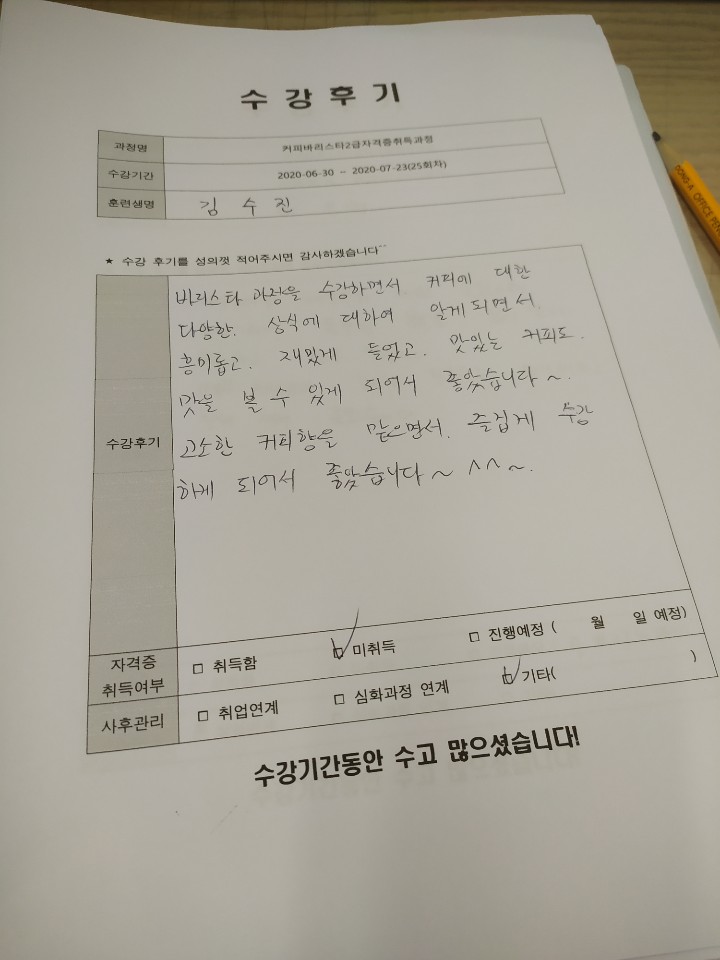 수 강 후 기
과정명 커피바리스타2급자격증취득과정
수강기간 2020-06-30 ~ 2020-07-23(25회차)
훈련생명 김 수 진
★ 수강 후기를 성의껏 적어주시면 감사하겠습니다^^
바리스타 과정을 수강하면서 커피에 대한
다양한. 상식에 대하여 알게 되면서.
흥미롭고. 재밌게 들었고. 맛있는 커피도.
맛을 볼 수 있게 되어서 좋았습니다~.
수강후기
고소한 커피향을 맡으면서. 즐겁게 수강
하게 되어서 좋았습니다~ ^^~.
자격증
취득여부
□ 취득함 ☑ 미취득 □ 진행예정 ( 월 일 예정)
사후관리 □ 취업연계 □ 심화과정 연계 ☑ 기타( )
수강기간동안 수고 많으셨습니다!
DONG-A OFFICE PEN